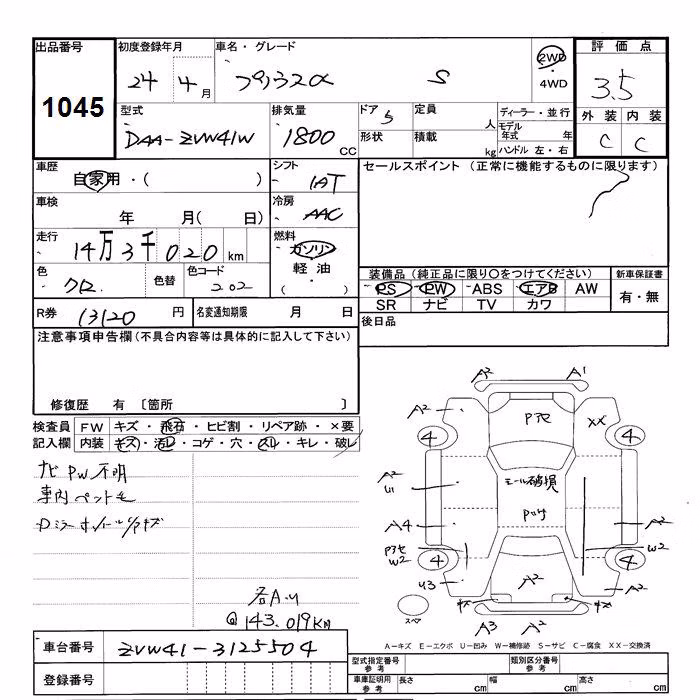 出品番号 初度登録年月 車名・グレード 評価点
1045 24 年 4月 プリウスα S 2WD・4WD 3.5
型式 排気量 ドア 定員 ディーラー・並行 外装 内装
DAA-ZVW41W 1800CC 5 人 モデル年式 年 C C
形状 積載 kg ハンドル 左・右
車歴 自家用・( ) シフト IAT セールスポイント (正常に機能するものに限ります)
車検 年 月( 日) 冷房 AAC
走行 14万3千020km 燃料 ガソリン 軽油・( )
色 クロ 色替 色コード 202 装備品(純正品に限り○をつけてください) 新車保証書
PS PW ABS エアB AW 有・無
SR ナビ TV カワ
R券 13120円 名変通知期限 月 日 後日品
注意事項申告欄(不具合内容等は具体的に記入して下さい)
修復歴 有〔箇所 〕
検査員 FW キズ・飛石・ヒビ割・リペア跡・×要
記入欄 内装 キズ・汚レ・コゲ・穴・スレ・キレ・破レ
ナビPW不明
車内ペット毛
各AU
Q143.019KM
車台番号 ZVW41-3125504
登録番号
A2 A1
A2 XX
4 4
A2 モール破損
U1
A4 A2
W2 W2
4 4
U3 A2 A2
スペア
A3 A2
A-キズ E-エクボ U-凹み W-補修跡 S-サビ C-腐食 XX-交換済
型式指定番号 参考 類別区分番号 参考
車庫証明用 参考 長さ cm 幅 cm 高さ cm